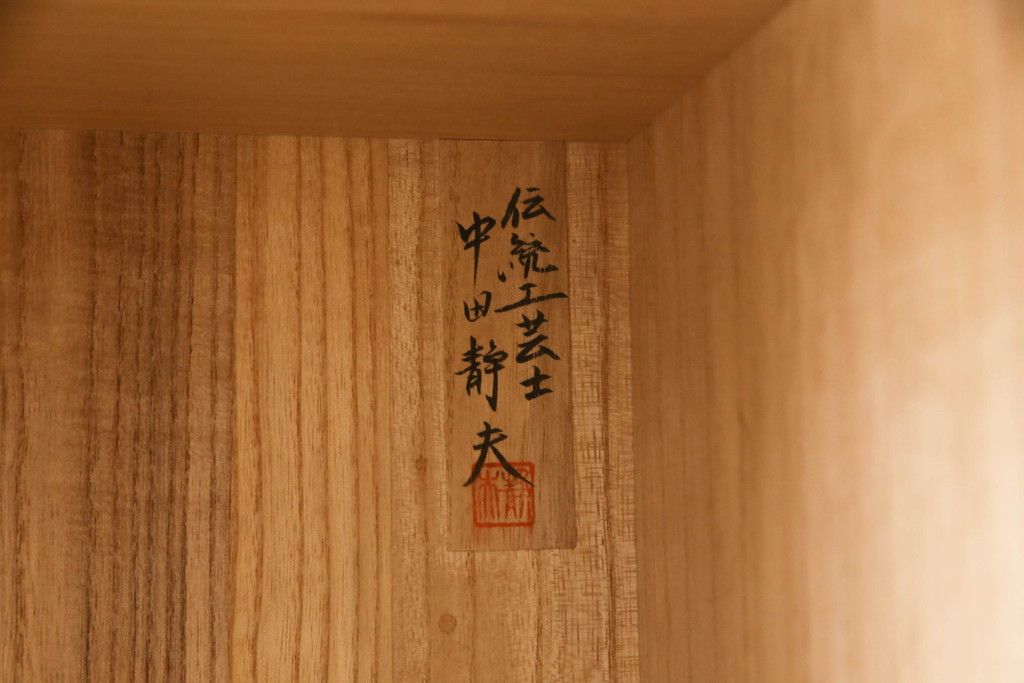 伝統工芸士
中田静夫